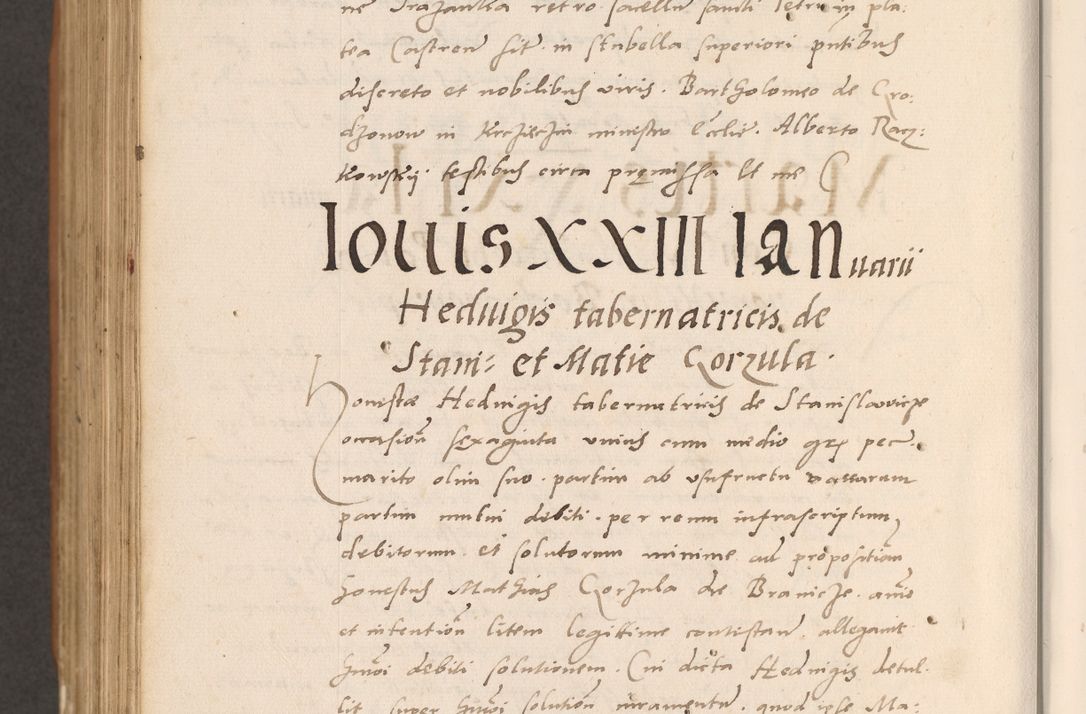 ne Trazantka retro sacellu sancti Petri in pla:
tea Castren sit in stubella superiori pntibus
discreto et nobilibus viris. Bartholomeo de Cro:
dzonow in ministro Ecclie. Alberto Racz:
kowskij testibus circa premissa Et me
Iouis XXIII Ianuarii
Heduigis tabernatricis de
Stani: et Matie Corzula.
Honestae Heduigis tabernatricis de Stanislawicze
occasion sexaginta vnius cum medio grz pec.
marito olim suo partim ab vsufructu vaccarum
partim mutui debiti per reum infrascriptum
debitorum et solutorum minime ad propositiam
honestus Mathias Corzula de Branicze animo
et intention litem legittime contestan allegauit
hmoi debiti solutionem. Cui dicta Heduigis detul.
lit super hmoi solution iuramentu quod ipse Ma: